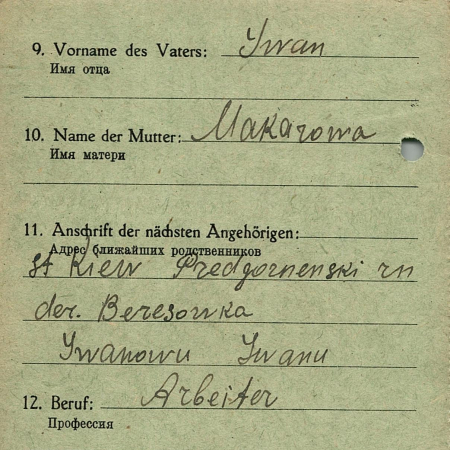 9. Vorname des Vaters: Iwan
Имя отца
10. Name der Mutter: Makarowa
Имя матери
11. Anschrift der nächsten Angehörigen:
Адрес ближайших родственников
st Kiew Predgornenski rn
der. Beresowka
Iwanowu Iwanu
12. Beruf: Arbeiter
Профессия